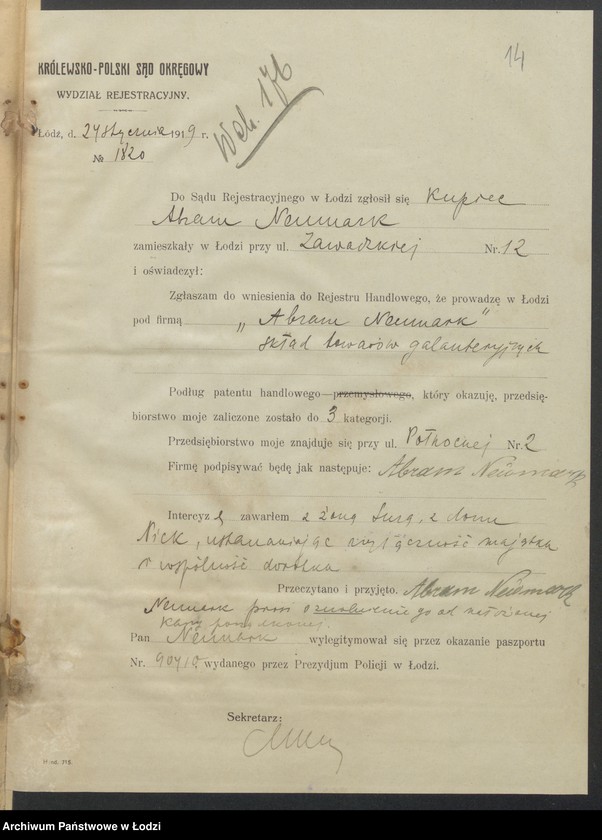 14
KRÓLEWSKO-POLSKI SĄD OKRĘGOWY
WYDZIAŁ REJESTRACYJNY.
Wch. 176
Łódź, d. 24 stycznia 1919 r.
№ 1820
Do Sądu Rejestracyjnego w Łodzi zgłosił się Kupiec
Abram Neumark
zamieszkały w Łodzi przy ul. Zawadzkiej Nr. 12
i oświadczył:
Zgłaszam do wniesienia do Rejestru Handlowego, że prowadzę w Łodzi
pod firmą „Abram Neumark"
skład towarów galanteryjnych
Podług patentu handlowego przemysłowego, który okazuję, przedsię-
biorstwo moje zaliczone zostało do 3 kategorji.
Przedsiębiorstwo moje znajduje się przy ul. Północnej Nr. 2
Firmę podpisywać będę jak następuje: Abram Neumark
Intercyzę zawarłem z żoną Surą, z domu
Nick, ustanawiając wyłączność majątku
i wspólność dorobku
Przeczytano i przyjęto. Abram Neumark
Neumark prosi o zwolnienie go od nałożonej
kary
Pan Neumark wylegitymował się przez okazanie paszportu
Nr. wydanego przez Prezydjum Policji w Łodzi.
Sekretarz:
Archiwum Państwowe w Łodzi